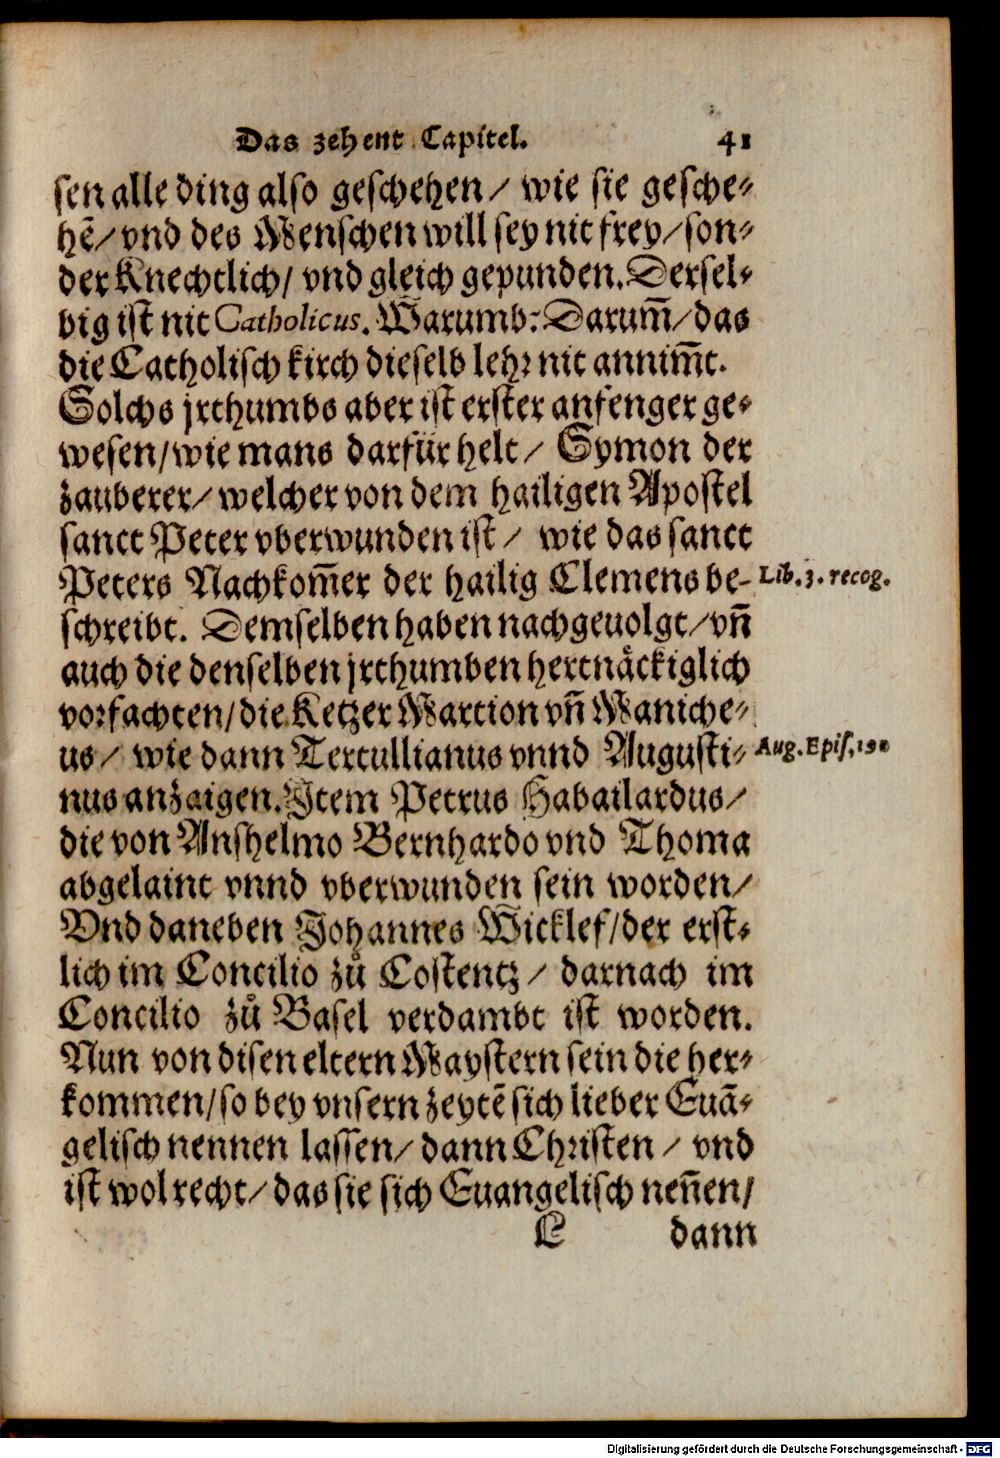 Das zehent Capitel. 41
sen alle ding also geschehen/ wie sie gesche⸗
hẽ/ vnd des Menschen will sey nit frey/ son⸗
der Knechtlich/ vnd gleich gepunden. Dersel⸗
big ist nit Catholicus. Warumb: Darum̃/ das
die Catholisch kirch dieselb lehr nit annim̃t.
Solchs jrthumbs aber ist erster anfenger ge⸗
wesen/ wie mans darfür helt/ Symon der
zauberer/ welcher von dem hailigen Apostel
sanct Peter vberwunden ist/ wie das sanct
Peters Nachkom̃er der hailig Clemens be-
Lib. 3. recog.
schreibt. Demselben haben nachgeuolgt/ vn̄
auch die denselben jrthumben hertnäckiglich
vorfachten/ die Ketzer Martion vn̄ Maniche⸗
us/ wie dann Tertullianus vnnd Augusti⸗
Aug. Epis.
nus anzaigen. Item Petrus Habailardus/
die von Anshelmo Bernhardo vnd Thoma
abgelaint vnnd vberwunden sein worden/
Vnd daneben Johannes Wicklef/ der erst⸗
lich im Concilio zů Costentz/ darnach im
Concilio zů Basel verdambt ist worden.
Nun von disen eltern Maystern sein die her⸗
kommen/ so bey vnsern zeytẽ sich lieber Euã⸗
gelisch nennen lassen/ dann Christen/ vnd
ist wol recht/ das sie sich Euangelisch nen̄en/
L dann
Digitalisierung gefördert durch die Deutsche Forschungsgemeinschaft - DFG